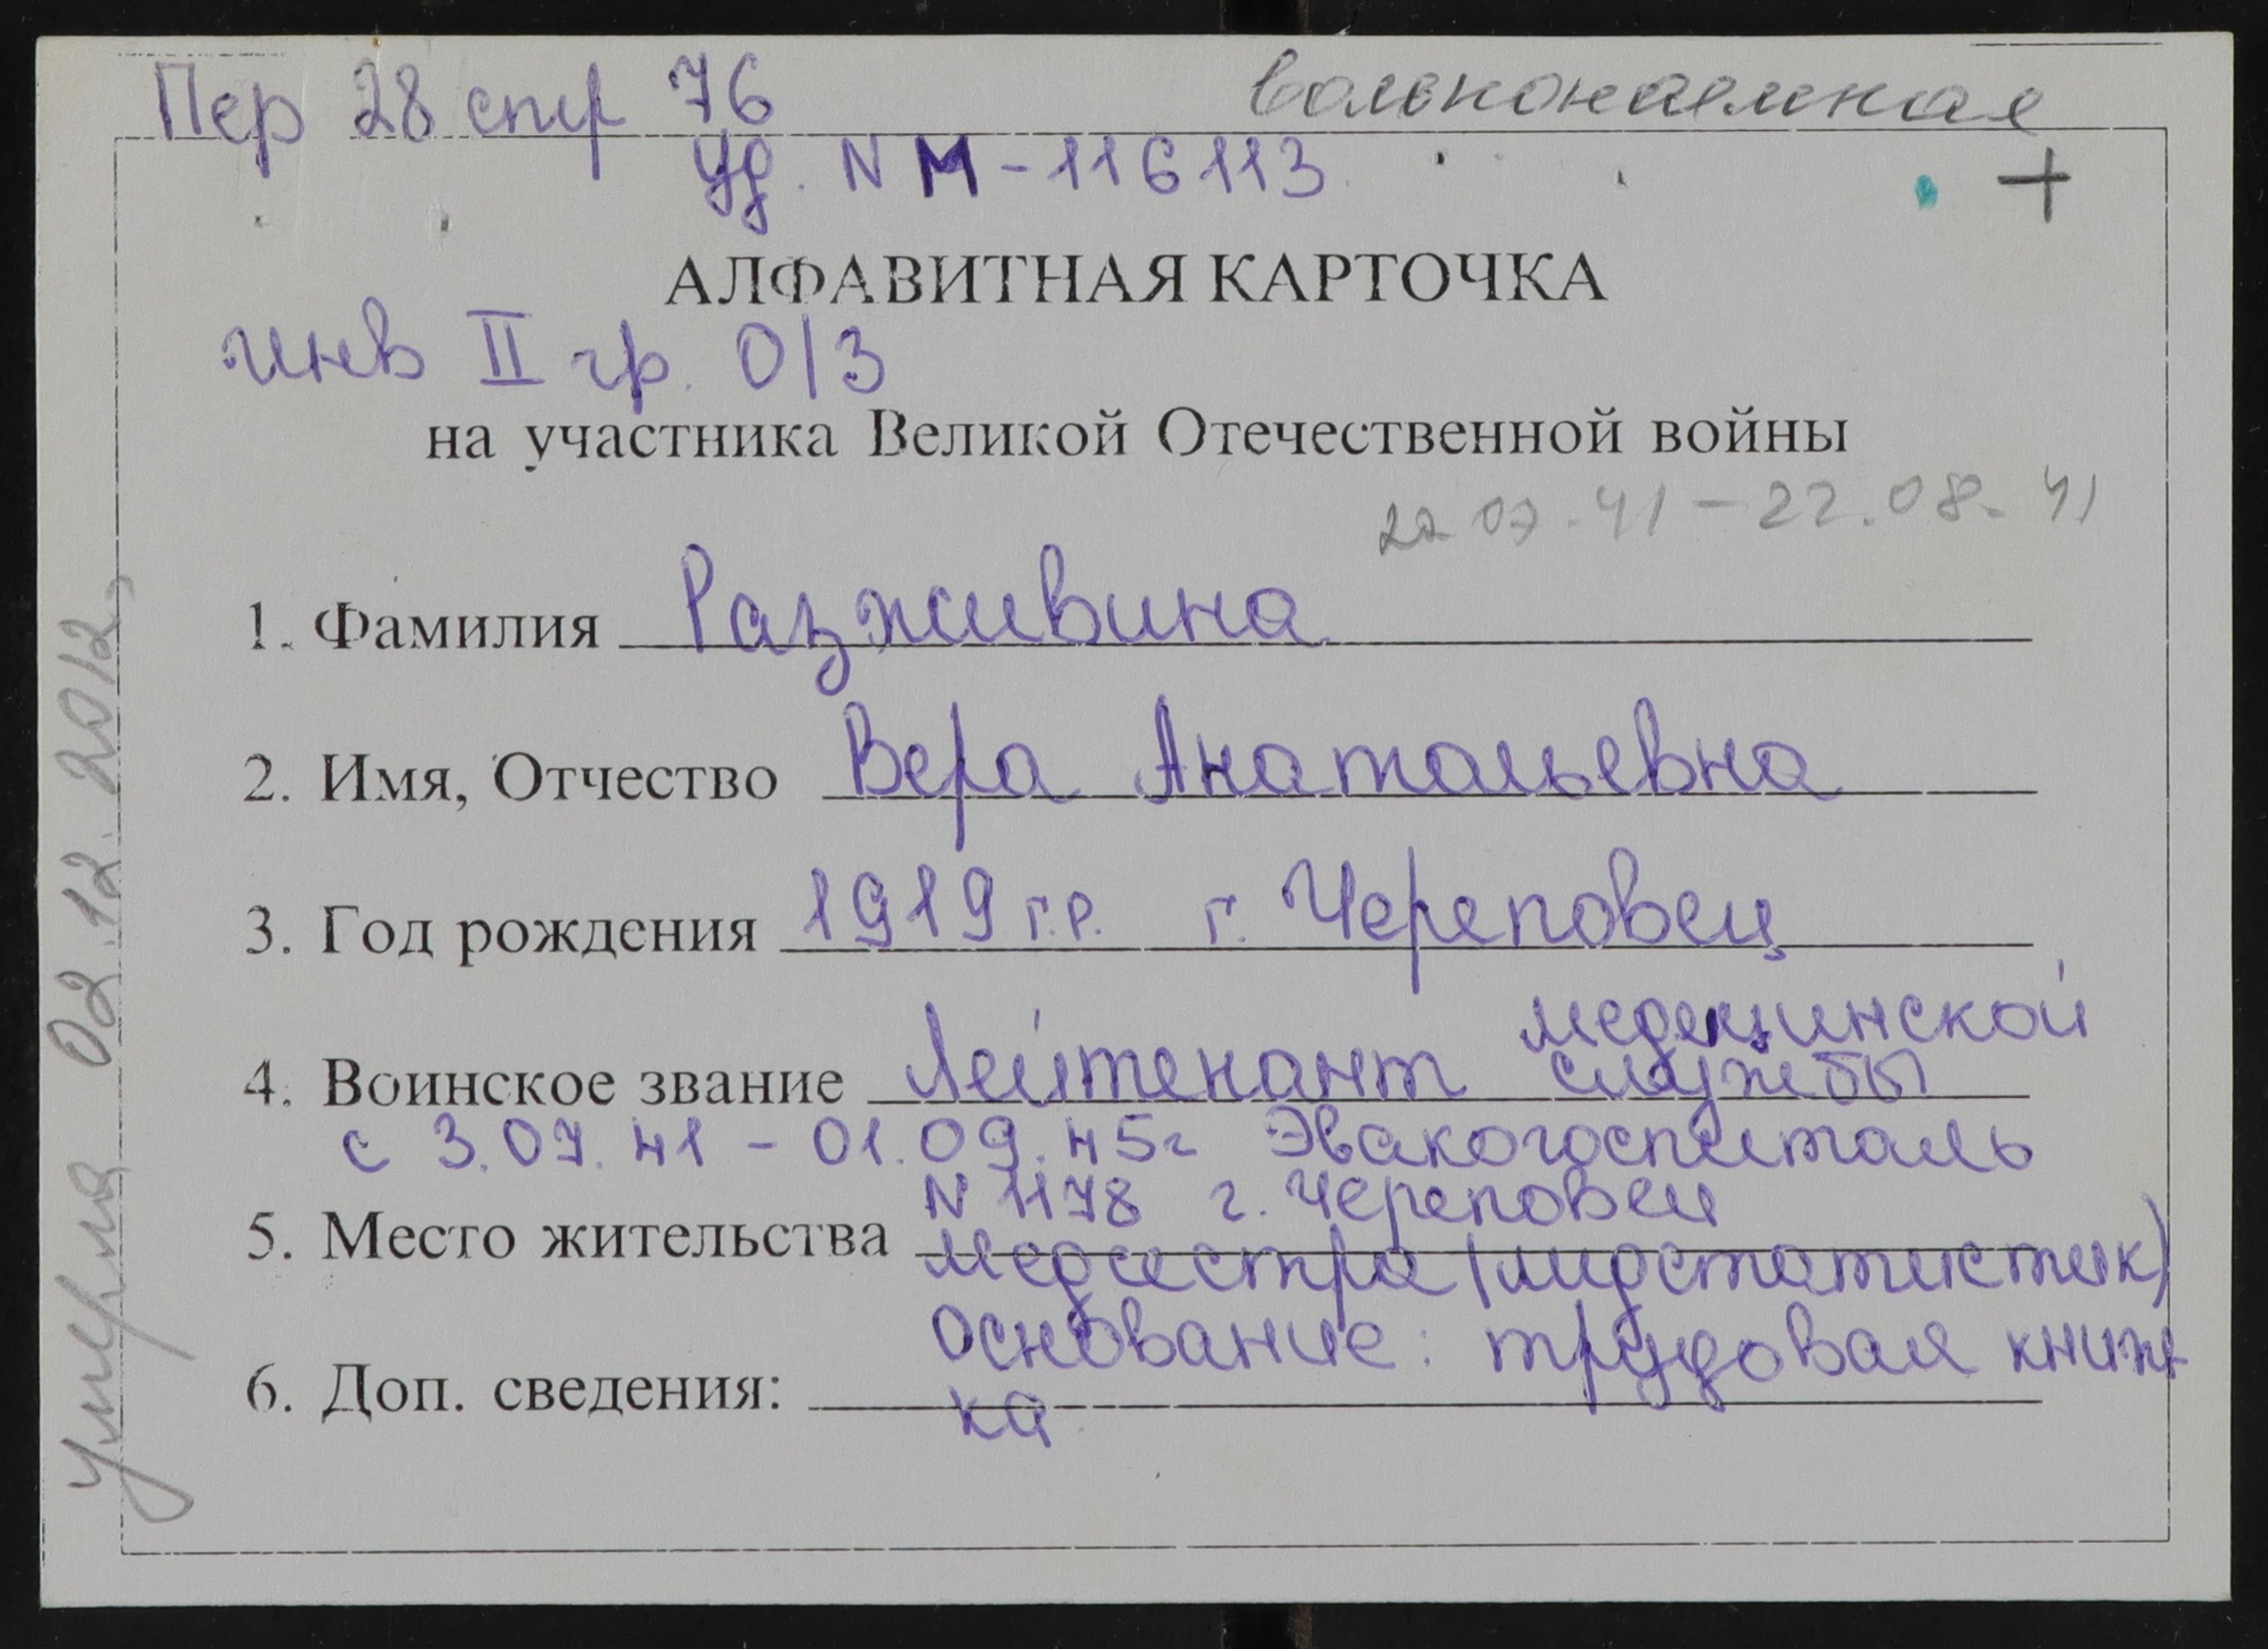 Пер 28 стр 76
вольнонаемная
уд. N М-116113
+
АЛФАВИТНАЯ КАРТОЧКА
инв II гр. О/З
на участника Великой Отечественной войны
22.07.41-22.08.41
1. Фамилия Разживина
2. Имя, Отчество Вера Анатольевна
3. Год рождения 1919 г.р. г. Череповец
медицинской
4. Воинское звание Лейтенант службы
с 3.07.41 - 01.09.45г Эвакогоспиталь
N 1178 г. Череповец
5. Место жительства
медсестра (медстатистик)
Основание: трудовая книж
6. Доп. сведения:
ка
умерла 02.12.2012